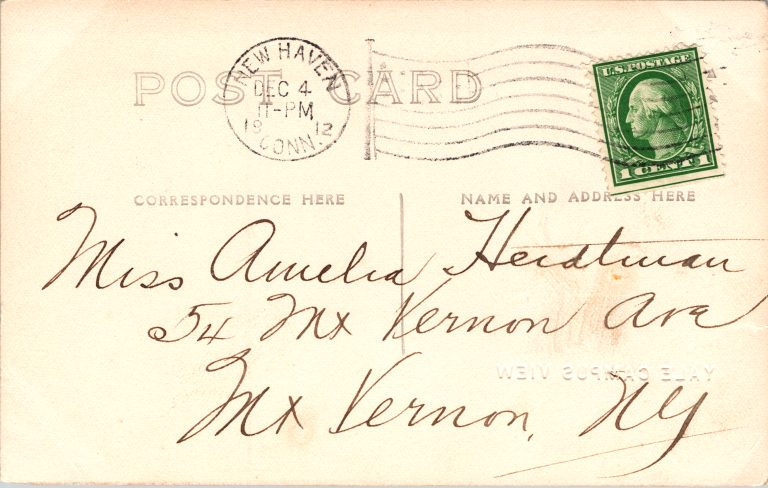 POST CARD
NEW HAVEN
DEC 4
11-PM
19 12
CONN.
U.S. POSTAGE
1 CENT 1
CORRESPONDENCE HERE
NAME AND ADDRESS HERE
Miss Amelia Heidtman
54 Mt Vernon Ave
YALE CAMPUS VIEW
Mt Vernon, NY